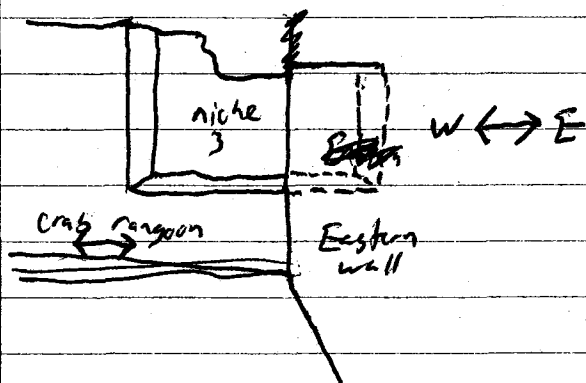 niche
3
W ↔ E
crab rangoon
Eastern
wall